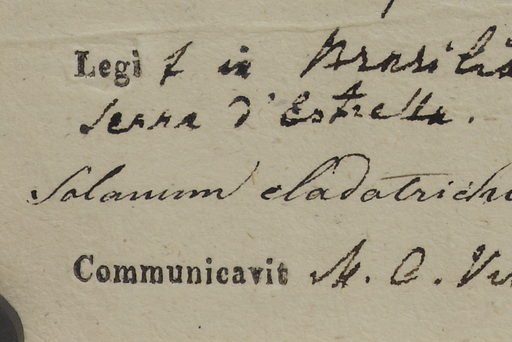 Legit in Brasilia
Serra d'Estrella.
Solanum cladotrich
Communicavit M. C.